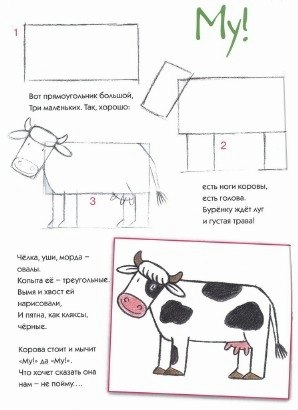 Му!
1
Вот прямоугольник большой,
Три маленьких. Так, хорошо:
2
3
есть ноги коровы,
есть голова.
Бурёнку ждёт луг
и густая трава!
Чёлка, уши, морда –
овалы.
Копыта её – треугольные.
Вымя и хвост ей
нарисовали,
И пятна, как кляксы,
чёрные.
Корова стоит и мычит
«Му!» да «Му!».
Что хочет сказать она
нам – не пойму....